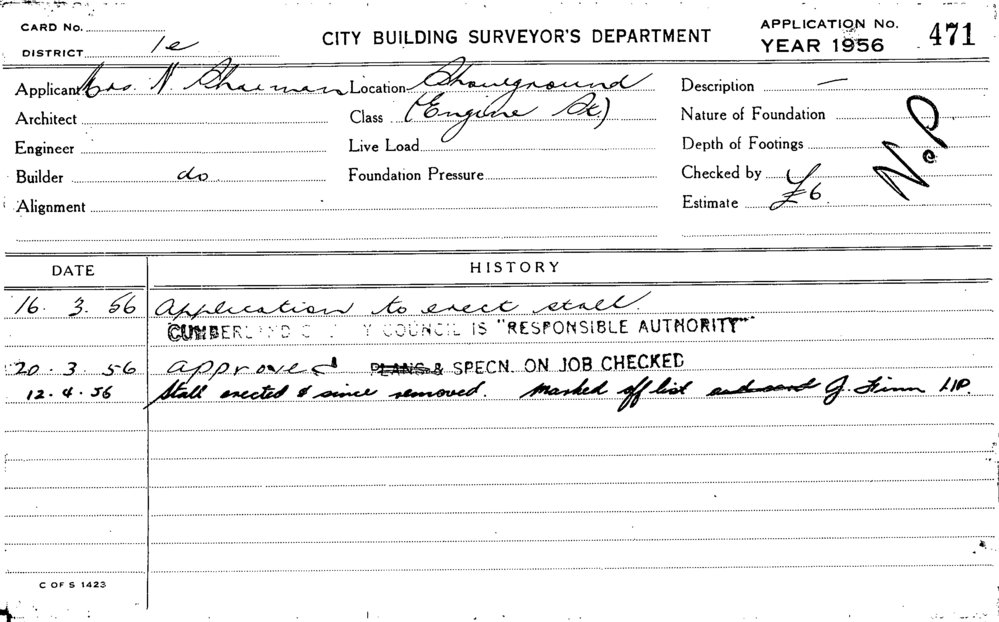 CARD No.
DISTRICT 1e
CITY BUILDING SURVEYOR'S DEPARTMENT
APPLICATION No. 471
YEAR 1956
Applicant Mrs. N. Sharman
Location Showground
Description —
Architect
Class (Engine St.)
Nature of Foundation
Engineer
Live Load
Depth of Footings
Builder do
Foundation Pressure
Checked by
Alignment
Estimate £6
N.P
DATE HISTORY
16. 3. 56 Application to erect stall.
CUMBERLAND COUNTY COUNCIL IS "RESPONSIBLE AUTHORITY"
20. 3. 56 approved PLANS & SPECN. ON JOB CHECKED
12. 4. 56 Stall erected & since removed. Marked off list J. Finn
C OF S 1423